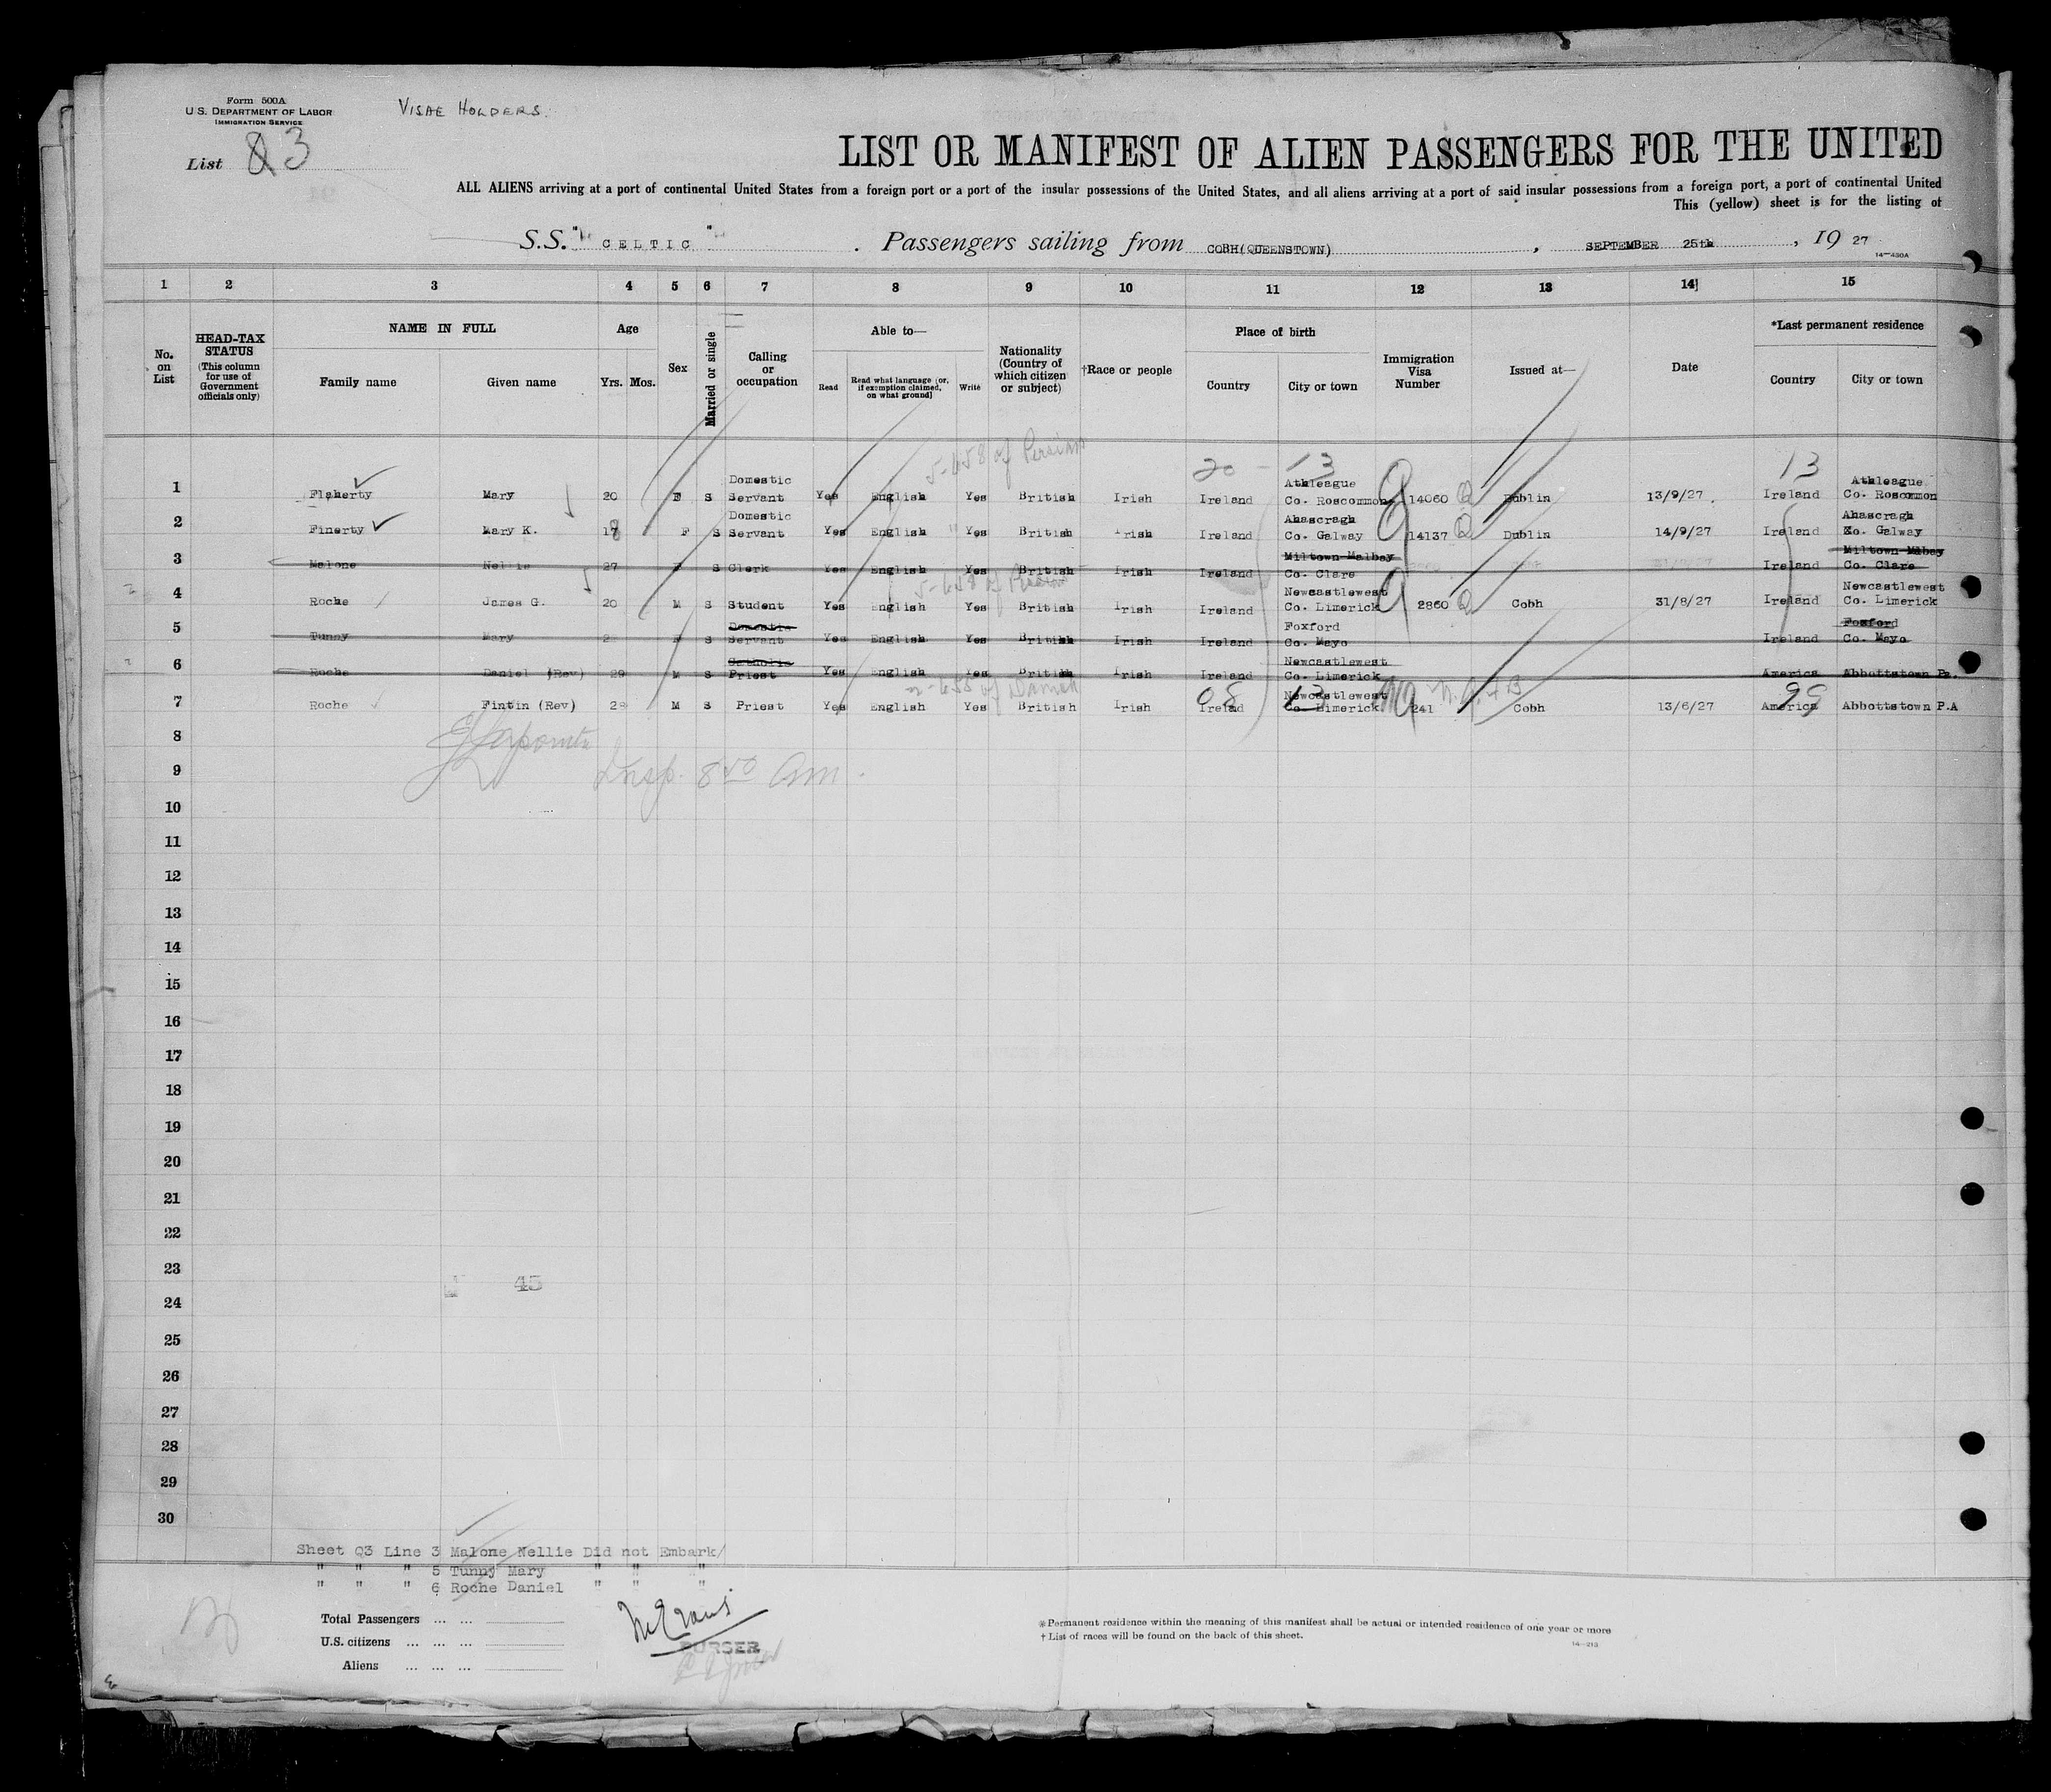 Form 500A
U.S. DEPARTMENT OF LABOR
IMMIGRATION SERVICE
VISAE HOLDERS.
List Q3
LIST OR MANIFEST OF ALIEN PASSENGERS FOR THE UNITED
ALL ALIENS arriving at a port of continental United States from a foreign port or a port of the insular possessions of the United States, and all aliens arriving at a port of said insular possessions from a foreign port, a port of continental United
This (yellow) sheet is for the listing of
S.S. " CELTIC " . Passengers sailing from COBH(QUEENSTOWN) , SEPTEMBER 25th , 19 27
14—430A
1 2 3 4 5 6 7 8 9 10 11 12 13 14 15
No. on List
HEAD-TAX STATUS (This column for use of Government officials only)
NAME IN FULL
Family name Given name
Age
Yrs. Mos.
Sex
Married or single
Calling or occupation
Able to—
Read Read what language [or, if exemption claimed, on what ground] Write
Nationality (Country of which citizen or subject)
†Race or people
Place of birth
Country City or town
Immigration Visa Number
Issued at—
Date
*Last permanent residence
Country City or town
20 - 13 13
1 Flaherty Mary 20 F S Domestic Servant Yes English Yes British Irish Ireland Athleague Co. Roscommon 14060 Q Dublin 13/9/27 Ireland Athleague Co. Roscommon
2 Finerty Mary K. 18 F S Domestic Servant Yes English Yes British Irish Ireland Ahascragh Co. Galway 14137 Q Dublin 14/9/27 Ireland Ahascragh Co. Galway
3 Malone Nellie 27 F S Clerk Yes English Yes British Irish Ireland Miltown Malbay Co. Clare Ireland Miltown Mlbay Co. Clare
4 Roche James G. 20 M S Student Yes English Yes British Irish Ireland Newcastlewest Co. Limerick 2860 Q Cobh 31/8/27 Ireland Newcastlewest Co. Limerick
5 Tunny Mary F S Domestic Servant Yes English Yes British Irish Ireland Foxford Co. Mayo Ireland Foxford Co. Mayo
6 Roche Daniel (Rev) 29 M S Catholic Priest Yes English Yes British Irish Ireland Newcastlewest Co. Limerick America Abbottstown Pa.
08 13 99
7 Roche Fintin (Rev) 28 M S Priest Yes English Yes British Irish Irelad Newcastlewest Co. Limerick 241 Cobh 13/6/27 America Abbottstown P.A
8
Insp. 8 50 am.
9
10
11
12
13
14
15
16
17
18
19
20
21
22
23
45
24
25
26
27
28
29
30
Sheet Q3 Line 3 Malone Nellie Did not Embark/
" " " 5 Tunny Mary " " "
" " " 6 Roche Daniel " " "
Total Passengers ... ...
U.S. citizens ... ... ...
Aliens ... ... ...
PURSER
*Permanent residence within the meaning of this manifest shall be actual or intended residence of one year or more
†List of races will be found on the back of this sheet.
14—213